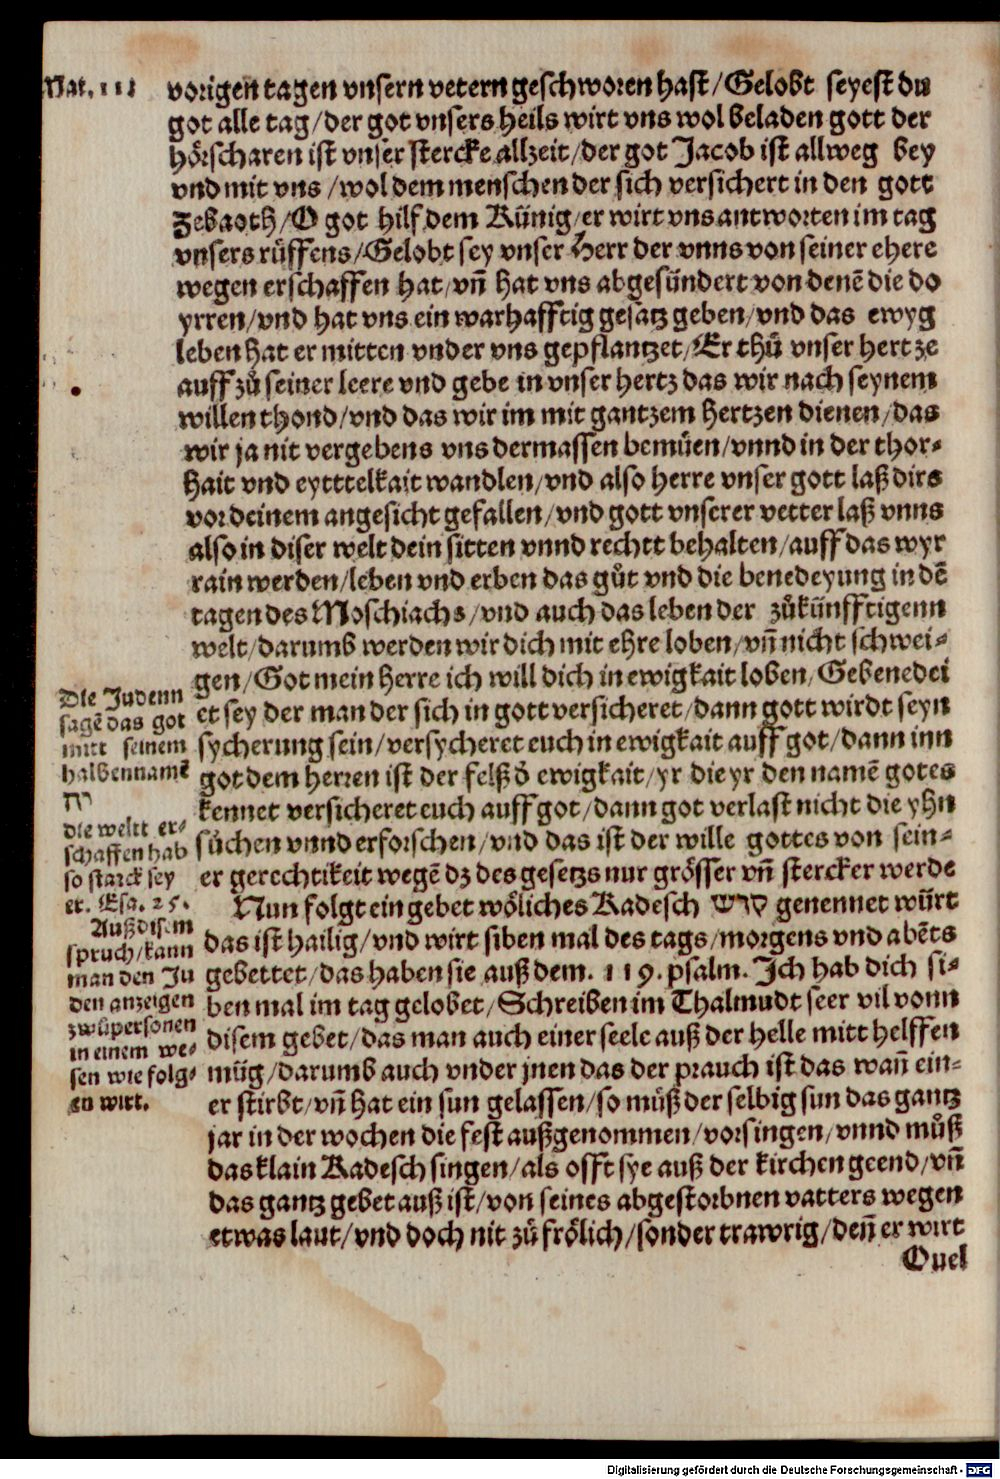 Nat. III
vorigen tagen vnsern vetern geschworen hast/Gelobt seyest du
got alle tag/der got vnsers heils wirt vns wol beladen gott der
hörscharen ist vnser stercke allzeit/der got Jacob ist allweg bey
vnd mit vns/wol dem menschen der sich versichert in den gott
Zebaoth/O got hilf dem Künig/er wirt vns antworten im tag
vnsers rüffens/Gelobt sey vnser Herr der vnns von seiner ehere
wegen erschaffen hat/vn̄ hat vns abgesündert von denē die do
yrren/vnd hat vns ein warhafftig gesatz geben/vnd das ewyg
leben hat er mitten vnder vns gepflantzet/Er thů vnser hertze
auff zů seiner leere vnd gebe in vnser hertz das wir nach seynem
willen thond/vnd das wir im mit gantzem hertzen dienen/das
wir ja nit vergebens vns dermassen bemüen/vnnd in der thor-
hait vnd eytttelkait wandlen/vnd also herre vnser gott laß dirs
vor deinem angesicht gefallen/vnd gott vnserer vetter laß vnns
also in diser welt dein sitten vnnd rechtt behalten/auff das wyr
rain werden/leben vnd erben das gůt vnd die benedeyung in dē
tagen des Moschiachs/vnd auch das leben der zůkünfftigenn
welt/darumb werden wir dich mit ehre loben/vn̄ nicht schwei-
gen/Got mein herre ich will dich in ewigkait loben/Gebenedei
et sey der man der sich in gott versicheret/dann gott wirdt seyn
sycherung sein/versycheret euch in ewigkait auff got/dann inn
got dem herren ist der felß d̄ ewigkait/yr die yr den namē gotes
kennet versicheret euch auff got/dann got verlast nicht die yhn
süchen vnnd erforschen/vnd das ist der wille gottes von sein-
er gerechtikeit wegē dz des gesetzs nur grösser vn̄ stercker werde
Die Judenn
sagē das got
mitt seinem
halben namē
יה
die weltt er-
schaffen hab
so starck sey
er. Esa. 25.
Auß disem
spruch/kann
man den Ju
den anzeigen
zwů personen
in einem we-
sen wie folg-
en wirt.
Nun folgt ein gebet wöliches Kadesch קדש genennet würt
das ist hailig/vnd wirt siben mal des tags/morgens vnd abēts
gebettet/das haben sie auß dem. 119. psalm. Ich hab dich si-
ben mal im tag gelobet/Schreiben im Thalmudt seer vil vonn
disem gebet/das man auch einer seele auß der helle mitt helffen
müg/darumb auch vnder jnen das der prauch ist das wan̄ ein-
er stirbt/vn̄ hat ein sun gelassen/so můß der selbig sun das gantz
jar in der wochen die fest außgenommen/vorsingen/vnnd můß
das klain Kadesch singen/als offt sye auß der kirchen geend/vn̄
das gantz gebet auß ist/von seines abgestorbnen vatters wegen
etwas laut/vnd doch nit zů frölich/sonder trawrig/den̄ er wirt
Quel
Digitalisierung gefördert durch die Deutsche Forschungsgemeinschaft - DFG